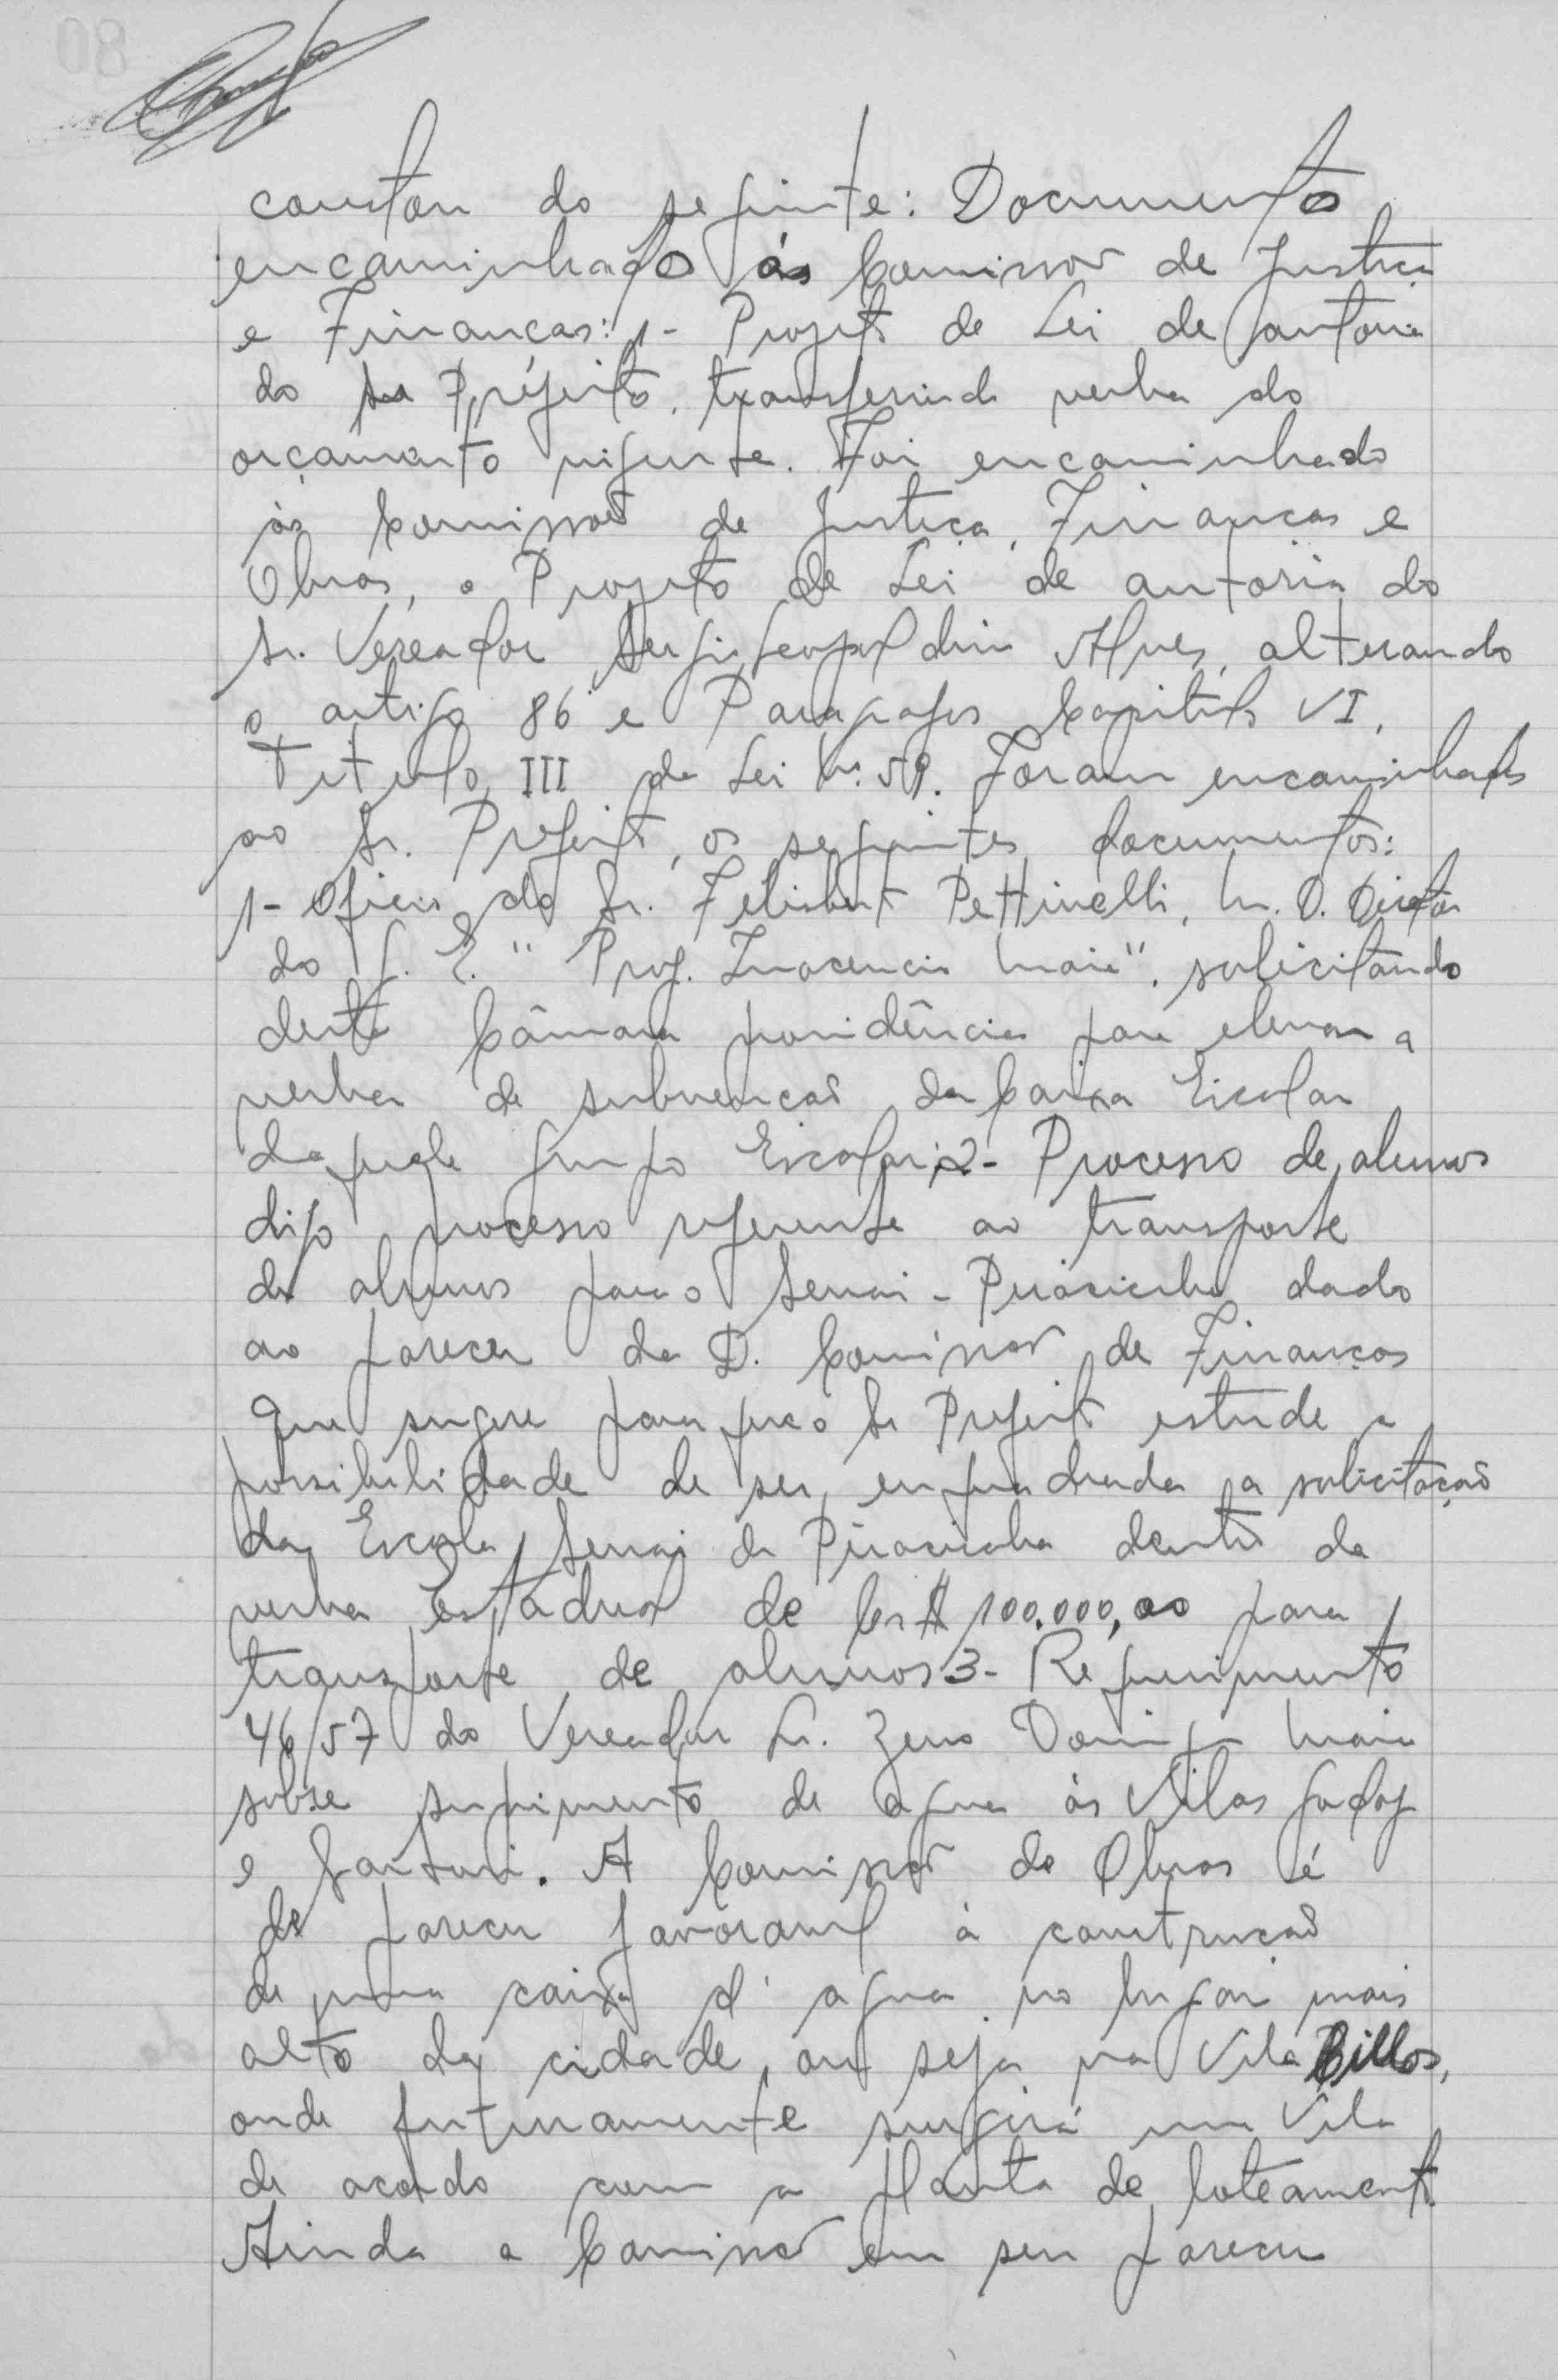 constou do seguinte: Documento
encaminhado às Comissões de Justiça
e Finanças: 1- Projeto de Lei de autoria
do Sr Préfeito, transferindo verba do
orçamento vigente. Foi encaminhado
às Comissões de Justiça, Finanças e
Obras, o Projeto de Lei de autoria do
Sr. Vereador Sergio Leopoldino Alves, alterando
o artigo 86 e Paragrafos Capitulo VI,
Titulo III da Lei nº 59. Foram encaminhados
ao Sr. Prefeito, os seguintes documentos:
1- Oficio do Sr. Felisberto Pettinelli, M. D. Diretor
do G. E. "Prof. Inocencio Maia", solicitando
desta Câmara providências para elevar a
verba de subvenção da Caixa Escolar
daquele Grupo Escolar; 2- Processo de alunos
digo processo referente ao transporte
de alunos para o Senai - Piracicaba dado
ao parecer da D. Comissão de Finanças
que sugere para que o Sr Prefeito estude a
possibilidade de ser enquadrada a solicitação
da Escola Senai de Piracicaba dentro da
verba Estadual de Cr$ 100.000,00 para
transporte de alunos 3- Requerimento
46/57 do Vereador Sr. Zeno Domingos Maia
sobre suprimento de agua às Vilas Godoy
e Santuri. A Comissão de Obras é
de parecer favoravel à construção
de uma caixa d'agua no lugar mais
alto da cidade, ou seja na Vila Cillos,
onde futuramente surgirá uma Vila
de acordo com a planta de loteamento.
Ainda a Comissão em seu parecer